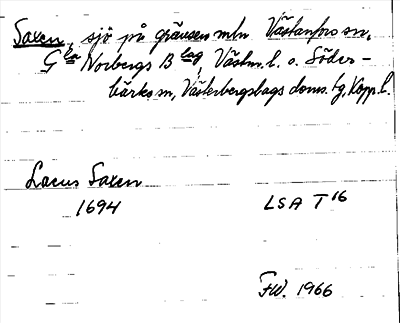 Saxen, sjö på gränsen mln Västanfors sn,
Gla Norbergs Blag, Västm.l. o. Söder-
bärke sn, Västerbergslags doms.tg, Kopp.l.
Lacus Saxen
1694 LSA T 16
F.W. 1966